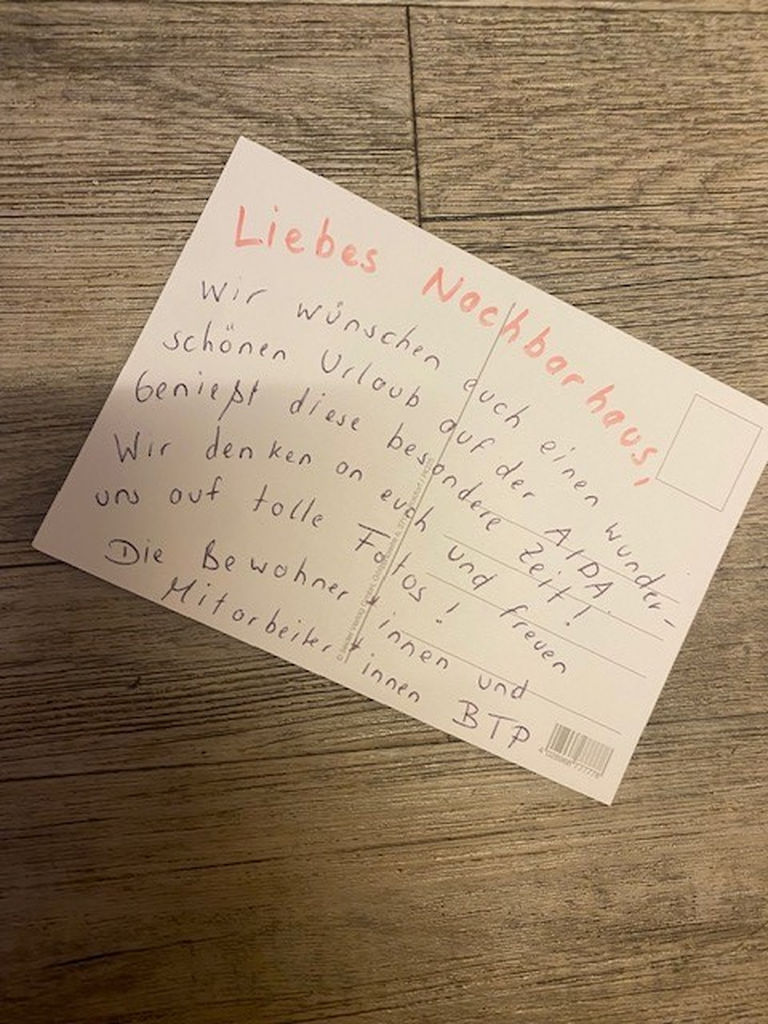 Liebes Nachbarhaus,
Wir wünschen euch einen wunder-
schönen Urlaub auf der AIDA.
Genießt diese besondere Zeit!
Wir denken an euch und freuen
uns auf tolle Fotos!
Die Bewohner*innen und
Mitarbeiter*innen BTP